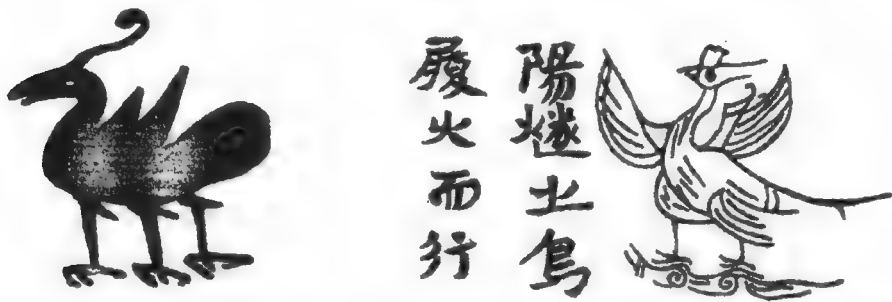 陽燧土鳥
履火而行